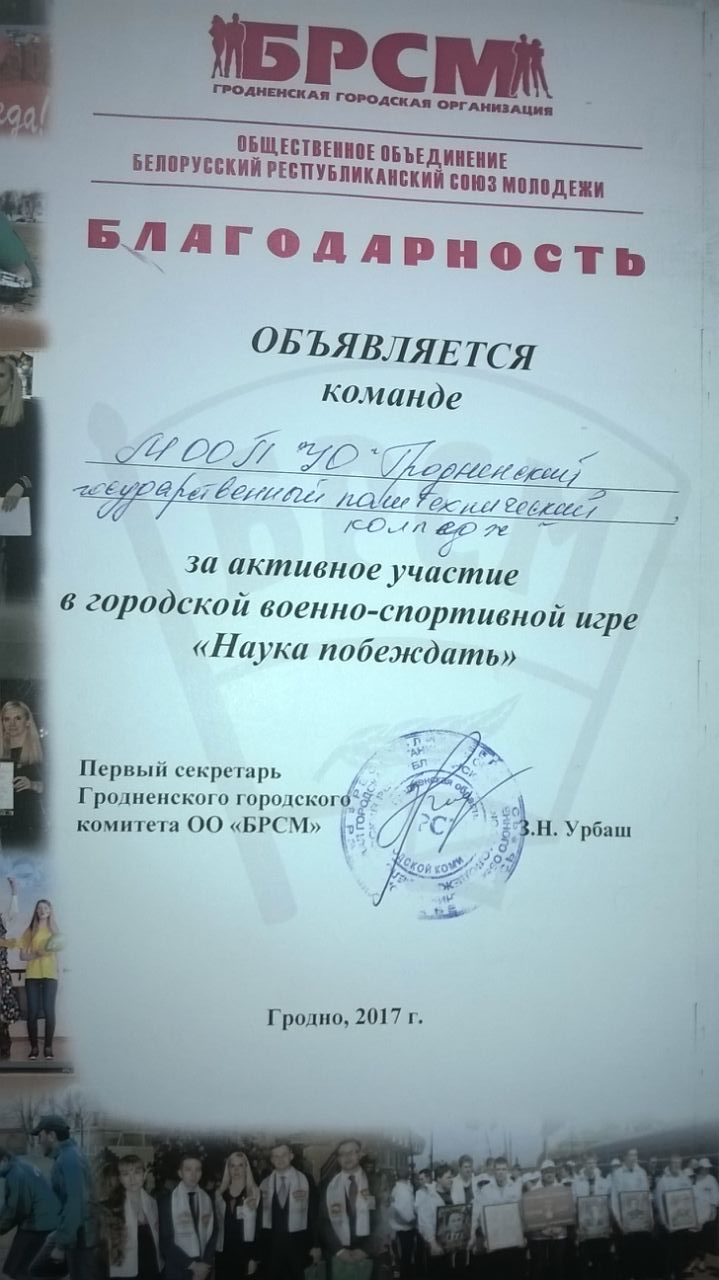 БРСМ
ГРОДНЕНСКАЯ ГОРОДСКАЯ ОРГАНИЗАЦИЯ
ОБЩЕСТВЕННОЕ ОБЪЕДИНЕНИЕ
БЕЛОРУССКИЙ РЕСПУБЛИКАНСКИЙ СОЮЗ МОЛОДЕЖИ
БЛАГОДАРНОСТЬ
ОБЪЯВЛЯЕТСЯ
команде
МООП УО "Гродненский
государственный политехнический
колледж
за активное участие
в городской военно-спортивной игре
«Наука побеждать»
Первый секретарь
Гродненского городского
комитета ОО «БРСМ»
З.Н. Урбаш
Гродно, 2017 г.